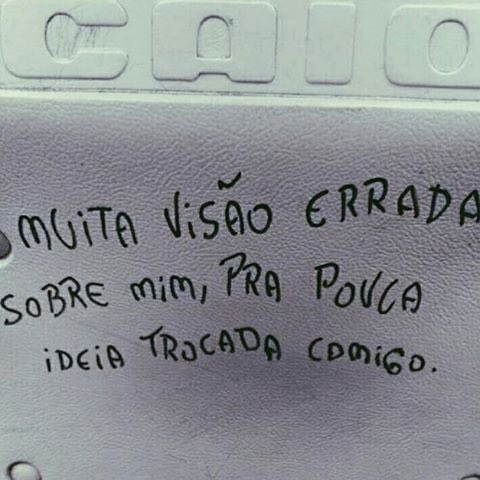 CAIO
MUITA VISÃO ERRADA
SOBRE MIM, PRA POUCA
IDEIA TROCADA COMIGO.